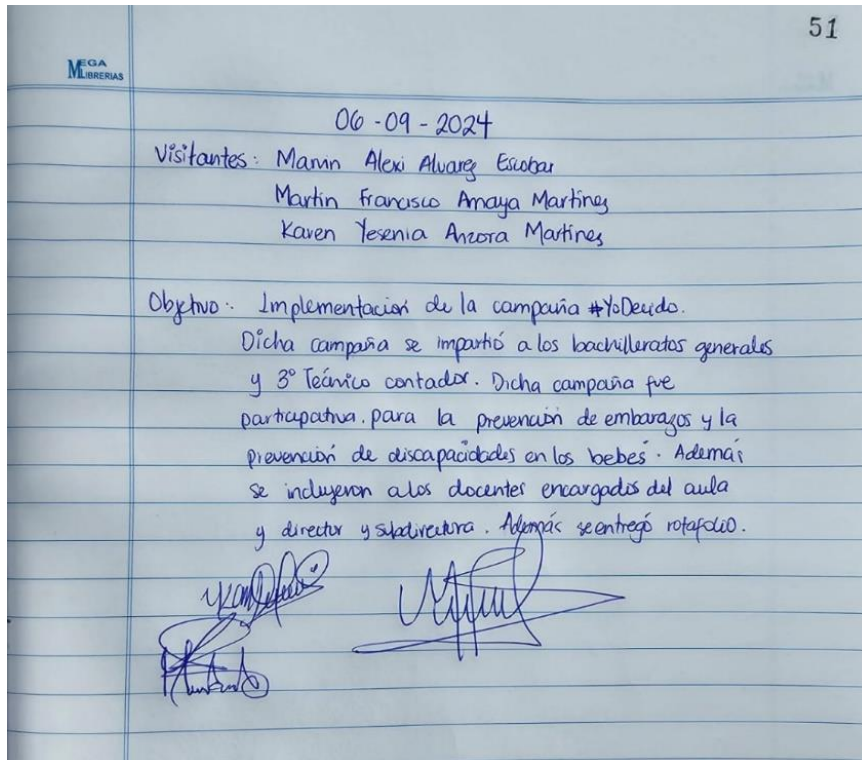 51
MEGA
LIBRERIAS
06-09-2024
Visitantes: Marvin Alexi Alvarez Escobar
Martin Francisco Amaya Martinez
Karen Yesenia Anzora Martinez
Objetivo: Implementacion de la campaña #YoDecido.
Dicha campaña se impartió a los bachilleratos generales
y 3° Técnico contador. Dicha campaña fue
participativa. para la prevención de embarazos y la
prevención de discapacidades en los bebes. Además
se incluyeron a los docentes encargados del aula
y director y subdirectora. Además se entregó rotafolio.